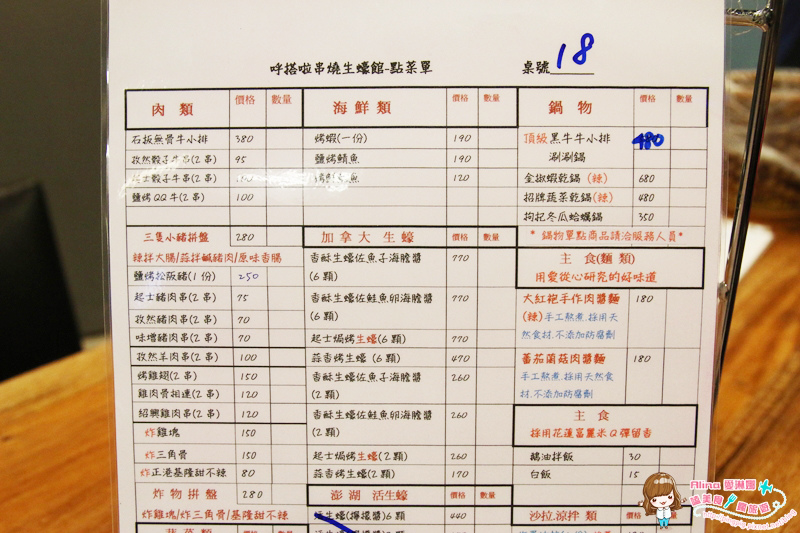 呼搭啦串燒生蠔館-點菜單
桌號 18
肉 類 價格 數量
石板無骨牛小排 380
孜然骰子牛串(2串) 95
起士骰子牛串(2串) 100
鹽烤QQ牛(2串) 100
三隻小豬拼盤 280
辣拌大腸/蒜拌鹹豬肉/原味香腸
鹽烤松阪豬(1份) 250
起士豬肉串(2串) 75
孜然豬肉串(2串) 70
味增豬肉串(2串) 70
孜然羊肉串(2串) 100
烤雞翅(2串) 150
雞肉骨妞連(2串) 120
紹興雞肉串(2串) 120
炸雞塊 150
炸三角骨 150
炸正港基隆甜不辣 80
炸物拼盤 280
炸雞塊/炸三角骨/基隆甜不辣
蔬菜類 價格 數量
海鮮類 價格 數量
烤蝦(一份) 190
鹽烤鯖魚 190
魚 120
加拿大 生蠔 價格 數量
香酥生蠔佐魚子海膽醬 770
(6顆)
香酥生蠔佐鮭魚卵海膽醬 770
(6顆)
起士焗烤生蠔(6顆) 770
蒜香烤生蠔(6顆) 470
香酥生蠔佐魚子海膽醬 260
(2顆)
香酥生蠔佐鮭魚卵海膽醬 260
(2顆)
起士焗烤生蠔(2顆) 260
蒜香烤生蠔(2顆) 170
澎湖 活生蠔 價格 數量
生蠔(檸檬醬)6顆 440
鍋物 價格 數量
頂級黑牛牛小排 480
涮涮鍋
金揪蝦乾鍋(辣) 680
招牌蔬菜乾鍋(辣) 480
枸杞冬瓜蛤蠣鍋 350
* 鍋物單點商品請洽服務人員*
主 食(麵類)
用愛從心研究的好味道
大紅袍手作肉醬麵 180
(辣)手工熬煮.採用天
然食材.不添加防腐劑
蕃茄蘭菇肉醬麵 180
手工熬煮.採用天然食
材.不添加防腐劑
主 食
採用花蓮富麗米Q彈留香
鵝油拌飯 30
白飯 15
沙拉.涼拌類 價格 數量
Alina 愛琳娜
嗑美食 瘋旅遊